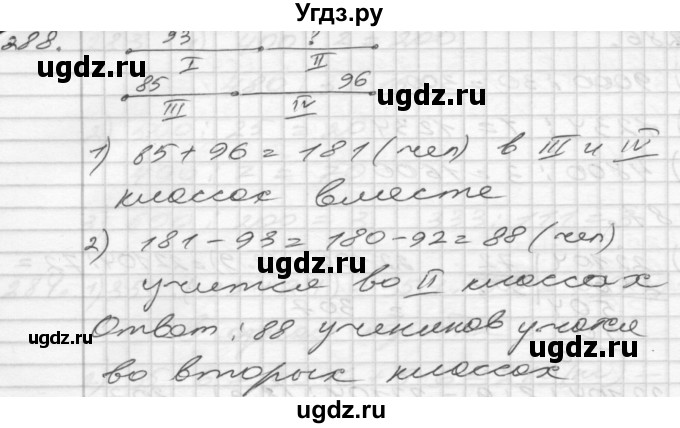 Угдз.ру
288.
93 ?
I II
85 96
III IV
1) 85 + 96 = 181 (чел) в III и IV
классах вместе
2) 181 - 93 = 180 - 92 = 88 (чел)
учится во II классах
Ответ: 88 учеников учатся
во вторых классах
ugdz.ru
ugdz.ru
ugdz.ru
ugdz.ru
ugdz.ru
ugdz.ru
ugdz.ru
ugdz.ru
ugdz.ru
ugdz.ru